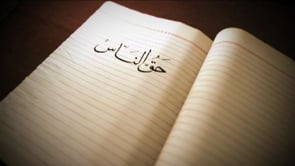 حَقُّ النَّاسْ